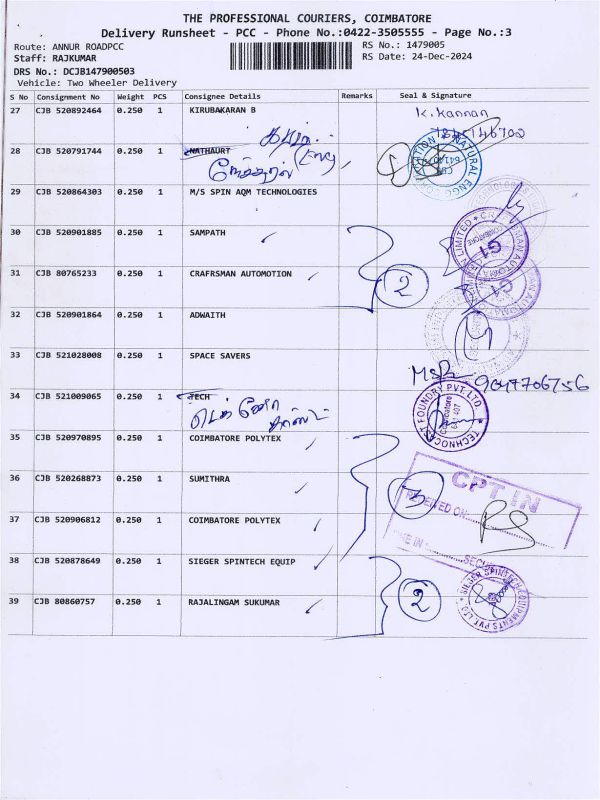 THE PROFESSIONAL COURIERS, COIMBATORE
Delivery Runsheet - PCC - Phone No.:0422-3505555 - Page No.:3
Route: ANNUR ROADPCC
RS No.: 1479005
Staff: RAJKUMAR
RS Date: 24-Dec-2024
DRS No.: DCJB147900503
Vehicle: Two Wheeler Delivery
S No Consignment No Weight PCS Consignee Details Remarks Seal & Signature
27 CJB 520892464 0.250 1 KIRUBAKARAN B K. Kannan
28 CJB 520791744 0.250 1 NATHAURT
29 CJB 520864303 0.250 1 M/S SPIN AQM TECHNOLOGIES
30 CJB 520901885 0.250 1 SAMPATH
31 CJB 80765233 0.250 1 CRAFRSMAN AUTOMATION 2
32 CJB 520901864 0.250 1 ADWAITH
33 CJB 521028008 0.250 1 SPACE SAVERS
9047706756
34 CJB 521009065 0.250 1 TECH
TECHNOCAST FOUNDRY PVT. LTD
35 CJB 520970895 0.250 1 COIMBATORE POLYTEX
36 CJB 520268873 0.250 1 SUMITHRA 3 CPT IN
37 CJB 520906812 0.250 1 COIMBATORE POLYTEX
38 CJB 520878649 0.250 1 SIEGER SPINTECH EQUIP
39 CJB 80860757 0.250 1 RAJALINGAM SUKUMAR 2
SIEGER SPINTECH EQUIPMENTS PVT. LTD.